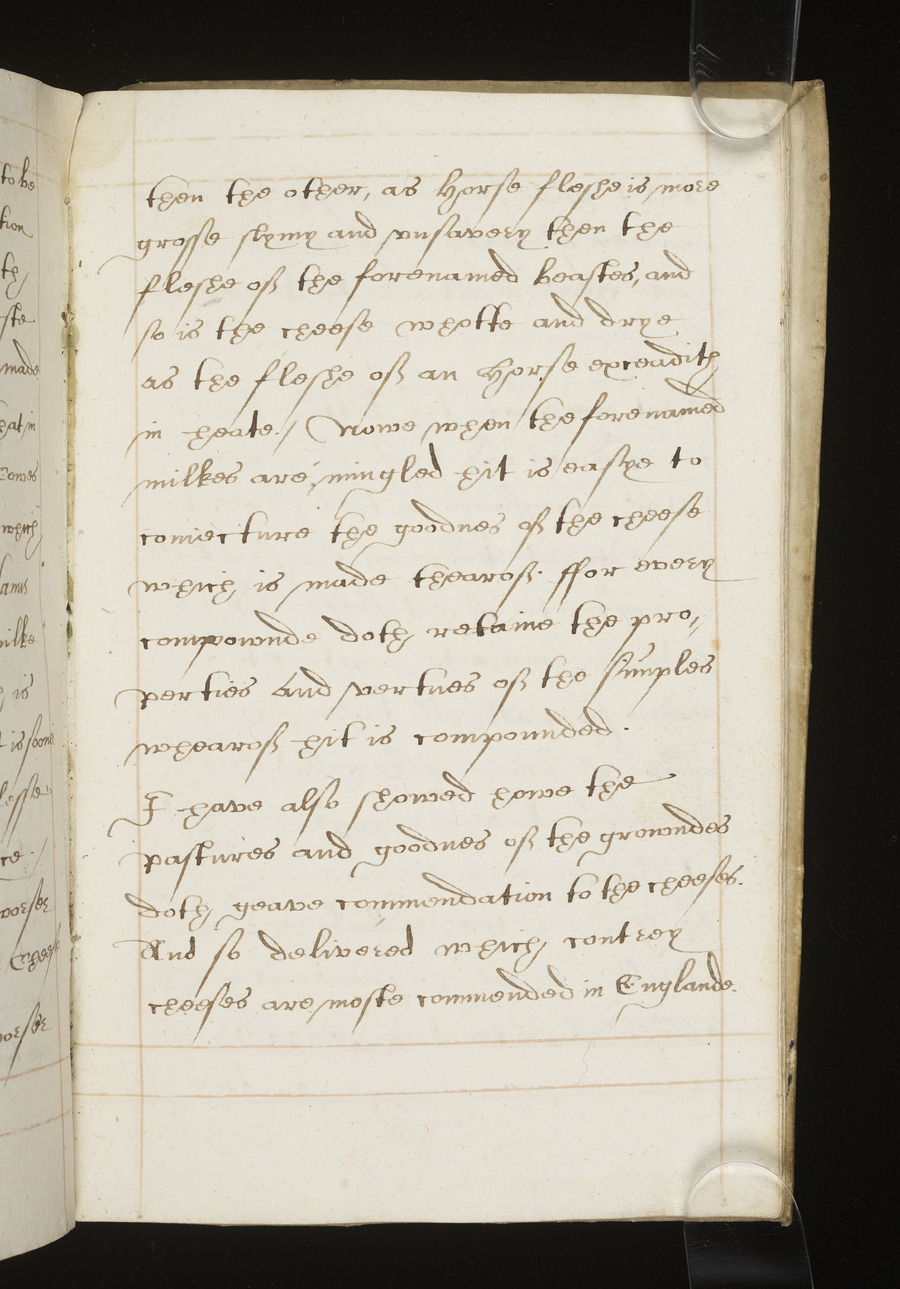 to be
tion
th
ste
made
hat in
Cowes
which
lams
milke
is
t is soone
lesse
ce ./
worse
Cheese
worse
then the other, as Horse fleshe is more
grosse slymy and vnsavery then the
fleshe off the forenamed beastes, and
so is the cheese whotte and drye
as the fleshe off an Horse exceadith
in heate ./ Nowe when the forenamed
milkes are mingled hit is easye to
coniecture the goodnes off the cheese
which is made thearoff. ffor every
compownde doth retaine the pro,,
perties and vertues off the simples
whearoff hit is compounded.
I have also showed howe the
pastures and goodnes off the growndes
doth geave commendation to the cheeses.
And so delivered which contrey
cheeses are moste commended in Englande.